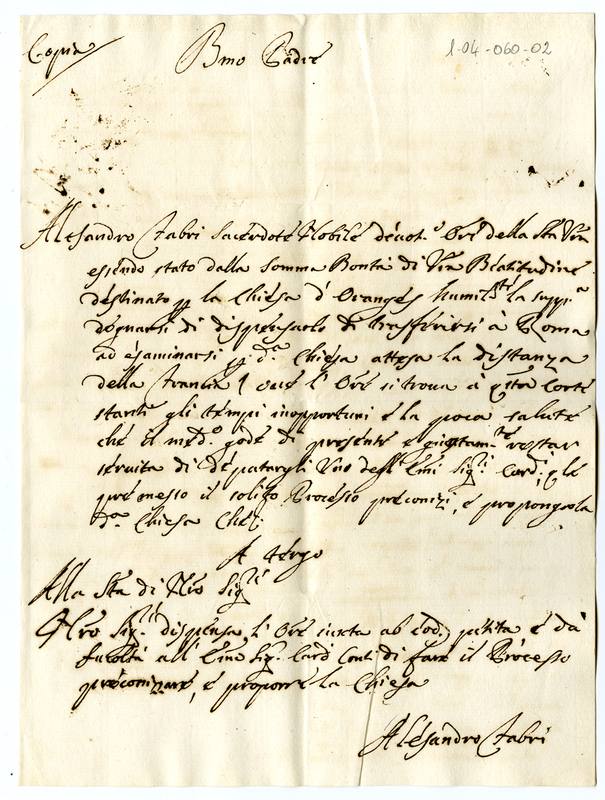 Copia
Bmo Padre
1-04-060-02
Alesandro Fabri Sacerdote Nobile devot.o Ore della Stà Vra
essendo stato dalla somma Bontà di Vra Beatitudine
destinato p la Chiesa d'Oranges humilte la supp.ca
degnarsi di dispensarlo di trasferirsi à Roma
ad esaminarsi p d.a Chiesa attesa la distanza
della Francia ove l'Ore si trova à qsta Corte
stanti gli tempi inopportuni e la poca salute
che il med.o gode di presente e restar
servita di deputargli Uno degli Emi Sig.ri Card.i che
premesso il solito Processo preconizi, e propongala
d.a Chiesa Che
A tergo
Alla Stà di Nro Sig.re
Nro Sig.re dispensa l'Ore iuxta ab eod. petita e dà
facoltà all'Emo Sig. Card Conti di fare il Processo
preconizare, e proporre la Chiesa
Alesandro Fabri